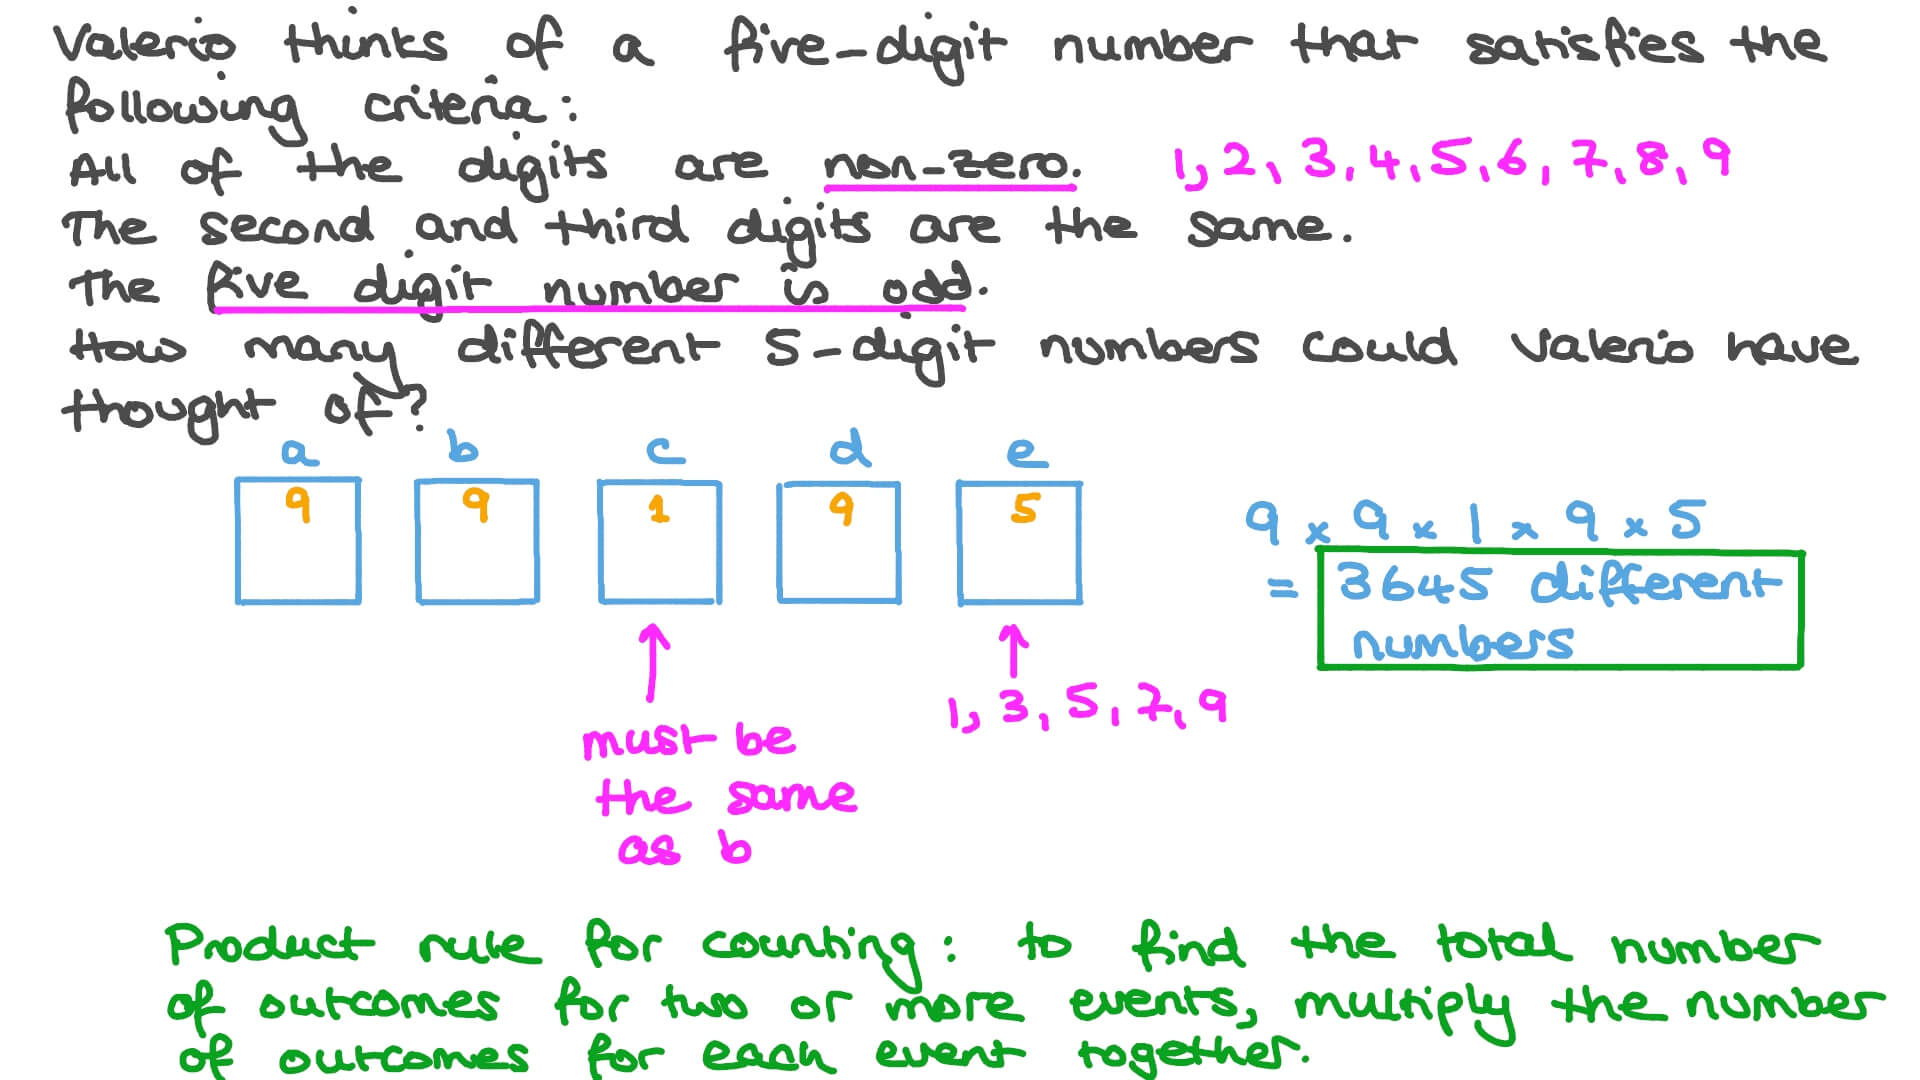 Valerio thinks of a five-digit number that satisfies the
following criteria:
All of the digits are non-zero. 1, 2, 3, 4, 5, 6, 7, 8, 9
The second and third digits are the same.
The five digit number is odd.
How many different 5-digit numbers could Valerio have
thought of?
a b c d e
9 9 1 9 5
9 × 9 × 1 × 9 × 5
= 3645 different
numbers
1, 3, 5, 7, 9
must be
the same
as b
Product rule for counting: to find the total number
of outcomes for two or more events, multiply the number
of outcomes for each event together.